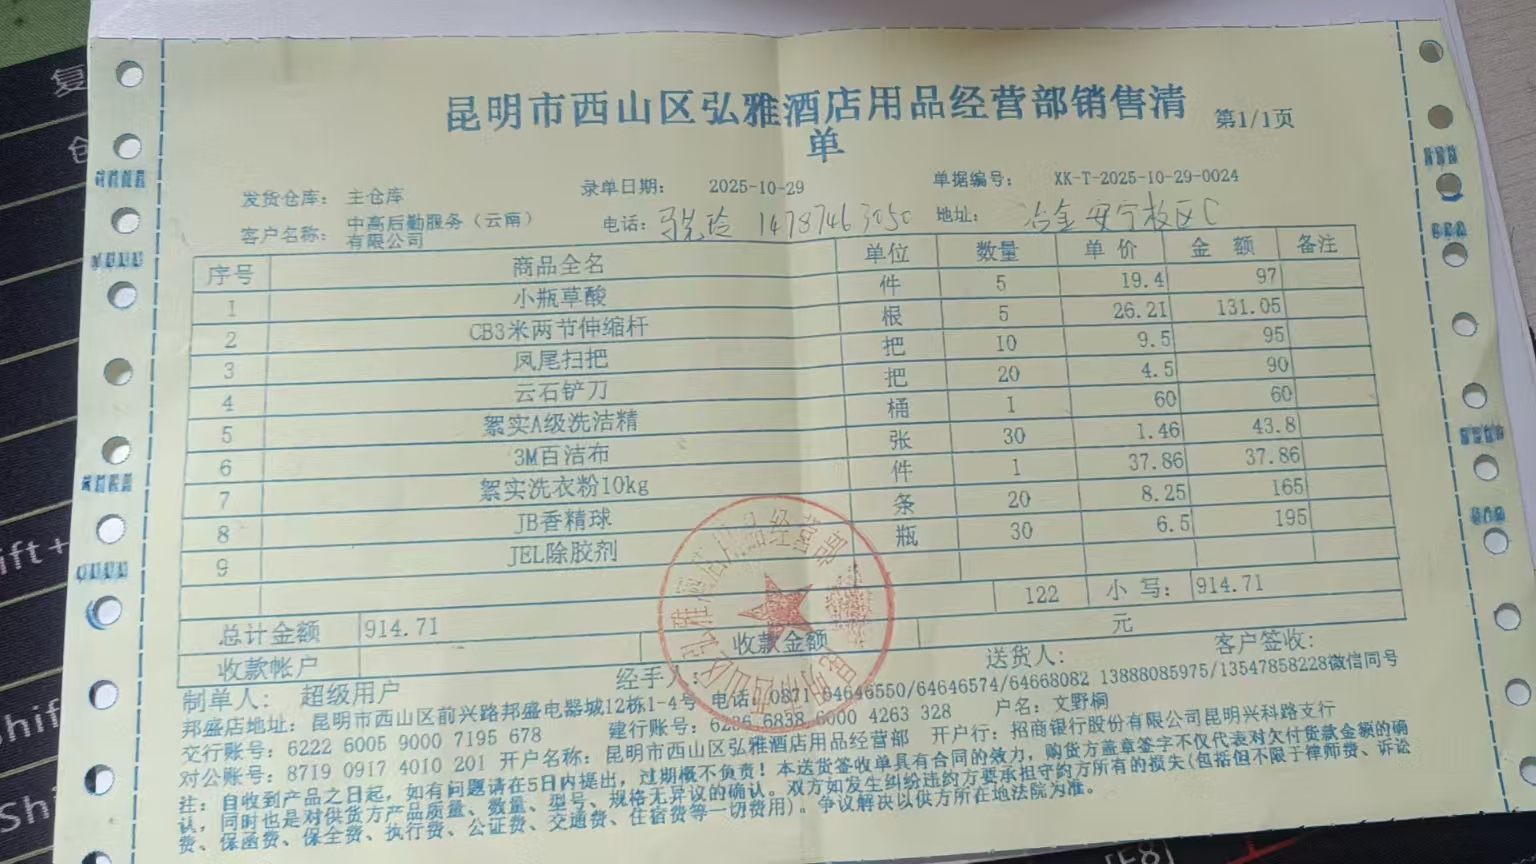 昆明市西山区弘雅酒店用品经营部销售清单
第1/1页
发货仓库: 主仓库 录单日期: 2025-10-29 单据编号: XK-T-2025-10-29-0024
客户名称: 中高后勤服务（云南）有限公司 电话: 14787463050 地址: 冶金安宁校区C
序号 商品全名 单位 数量 单价 金额 备注
1 小瓶草酸 件 5 19.4 97
2 CB3米两节伸缩杆 根 5 26.21 131.05
3 凤尾扫把 把 10 9.5 95
4 云石铲刀 把 20 4.5 90
5 絮实A级洗洁精 桶 1 60 60
6 3M百洁布 张 30 1.46 43.8
7 絮实洗衣粉10kg 件 1 37.86 37.86
8 JB香精球 条 20 8.25 165
9 JEL除胶剂 瓶 30 6.5 195
122 小写: 914.71
总计金额 914.71 收款金额 元
收款帐户
制单人: 超级用户 经手人: 送货人: 客户签收:
邦盛店地址: 昆明市西山区前兴路邦盛电器城12栋1-4号 电话: 0871 64646550/64646574/64668082 13888085975/13547858228微信同号
交行账号: 6222 6005 9000 7195 678 建行账号: 6236 6838 6000 4263 328 户名: 文野桐
对公账号: 8719 0917 4010 201 开户名称: 昆明市西山区弘雅酒店用品经营部 开户行: 招商银行股份有限公司昆明兴科路支行
注: 自收到产品之日起, 如有问题请在5日内提出, 过期概不负责! 本送货签收单具有合同的效力, 购货方盖章签字不仅代表对欠付货款金额的确
认, 同时也是对供货方产品质量、数量、型号、规格无异议的确认。双方如发生纠纷违约方要承担守约方所有的损失(包括但不限于律师费、诉讼
费、保函费、保全费、执行费、公证费、交通费、住宿费等一切费用)。争议解决以供方所在地法院为准。